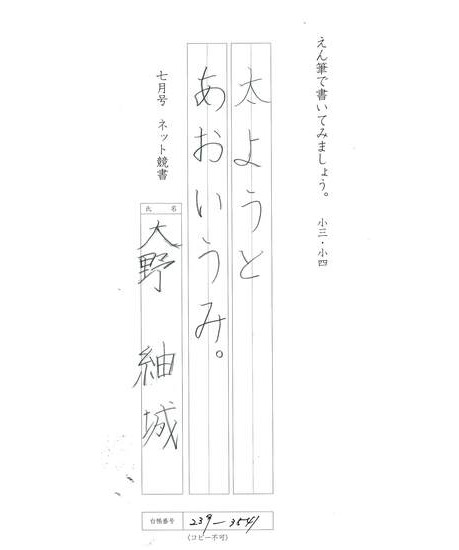 えん筆で書いてみましょう。 小三・小四
太ようと
あおいうみ。
七月号 ネット競書
氏名
大野 紬城
台帳番号 239-3541
(コピー不可)